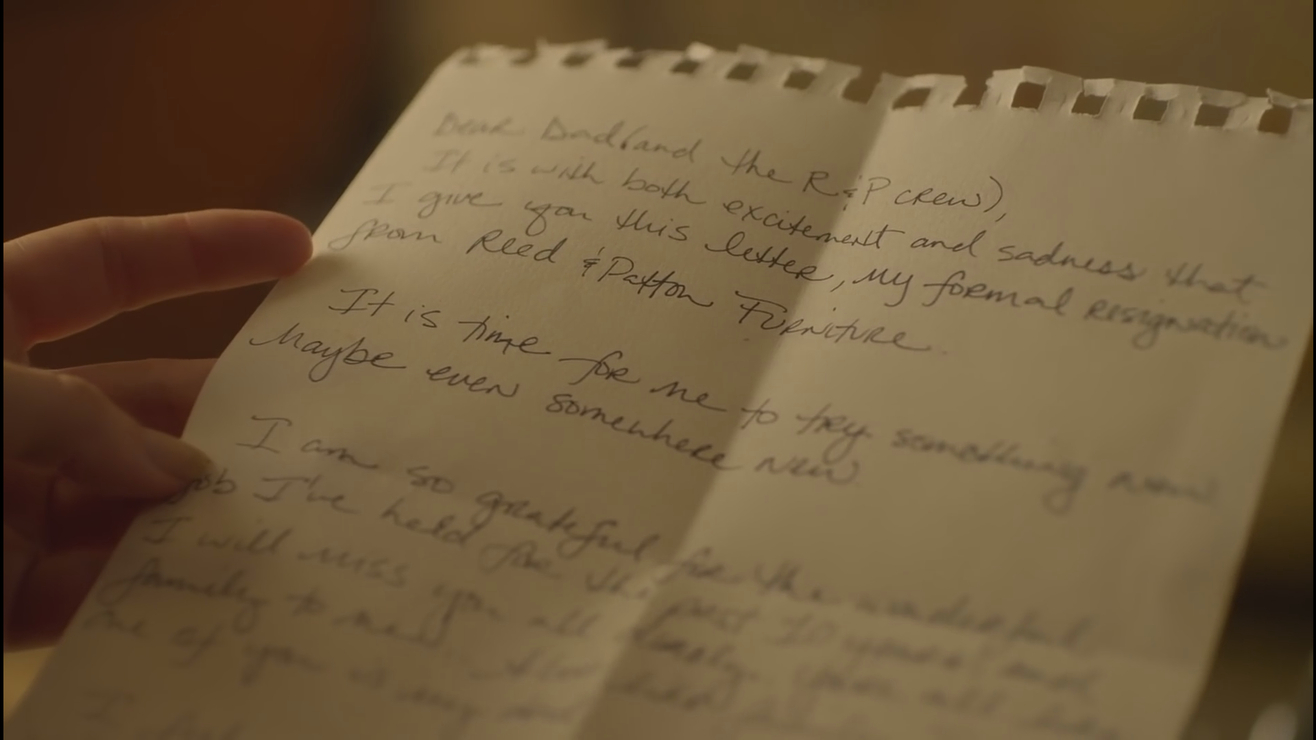 Dear Dad (and the R & P crew),
It is with both excitement and sadness that
I give you this letter, my formal resignation
from Reed & Patton Furniture.
It is time for me to try something new
Maybe even somewhere new.
I am so grateful for the wonderful
job I've held for the past 10 years and
I will miss you all
family to me
one of you is my
I